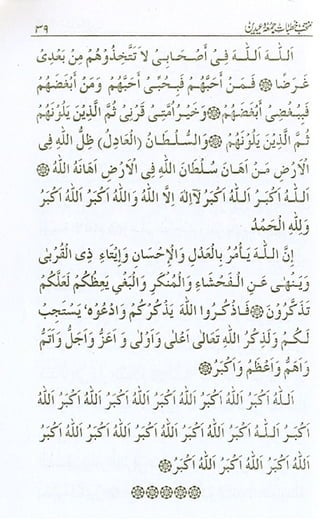 ۳۹ منتخب خطبات جمعہ و عیدین
اَللهَ اَللهَ فِىْ اَصْحَابِىْ لَا تَتَّخِذُوْهُمْ مِنْ بَعْدِىْ
غَرَضًا ۞ فَمَنْ اَحَبَّهُمْ فَبِحُبِّىْ اَحَبَّهُمْ وَمَنْ اَبْغَضَهُمْ
فَبِبُغْضِىْ اَبْغَضَهُمْ ۞ وَخَيْرُ اُمَّتِىْ قَرْنِىْ ثُمَّ الَّذِيْنَ يَلُوْنَهُمْ
ثُمَّ الَّذِيْنَ يَلُوْنَهُمْ ۞ وَالسُّلْطَانُ (الْعَادِلُ) ظِلُّ اللهِ فِى
الْاَرْضِ مَنْ اَهَانَ سُلْطَانَ اللهِ فِى الْاَرْضِ اَهَانَهُ اللهُ ۞
اَللهُ اَكْبَرُ اَللهُ اَكْبَرُ لَآ اِلٰهَ اِلَّا اللهُ وَاللهُ اَكْبَرُ اَللهُ اَكْبَرُ
وَلِلّٰهِ الْحَمْدُ
اِنَّ اللهَ يَاْمُرُ بِالْعَدْلِ وَالْاِحْسَانِ وَاِيْتَاءِ ذِى الْقُرْبٰى
وَيَنْهٰى عَنِ الْفَحْشَاءِ وَالْمُنْكَرِ وَالْبَغْىِ يَعِظُكُمْ لَعَلَّكُمْ
تَذَكَّرُوْنَ ۞ فَاذْكُرُوا اللهَ يَذْكُرْكُمْ وَادْعُوْهُ يَسْتَجِبْ
لَكُمْ وَلَذِكْرُ اللهِ تَعَالٰى اَعْلٰى وَاَوْلٰى وَ اَعَزُّ وَاَجَلُّ وَاَتَمُّ
وَاَهَمُّ وَاَعْظَمُ وَاَكْبَرُ ۞
اَللهُ اَكْبَرُ اَللهُ اَكْبَرُ اَللهُ اَكْبَرُ اَللهُ اَكْبَرُ اَللهُ اَكْبَرُ اَللهُ
اَكْبَرُ اَللهُ اَكْبَرُ اَللهُ اَكْبَرُ اَللهُ اَكْبَرُ اَللهُ اَكْبَرُ اَللهُ اَكْبَرُ
اَللهُ اَكْبَرُ اَللهُ اَكْبَرُ اَللهُ اَكْبَرُ ۞